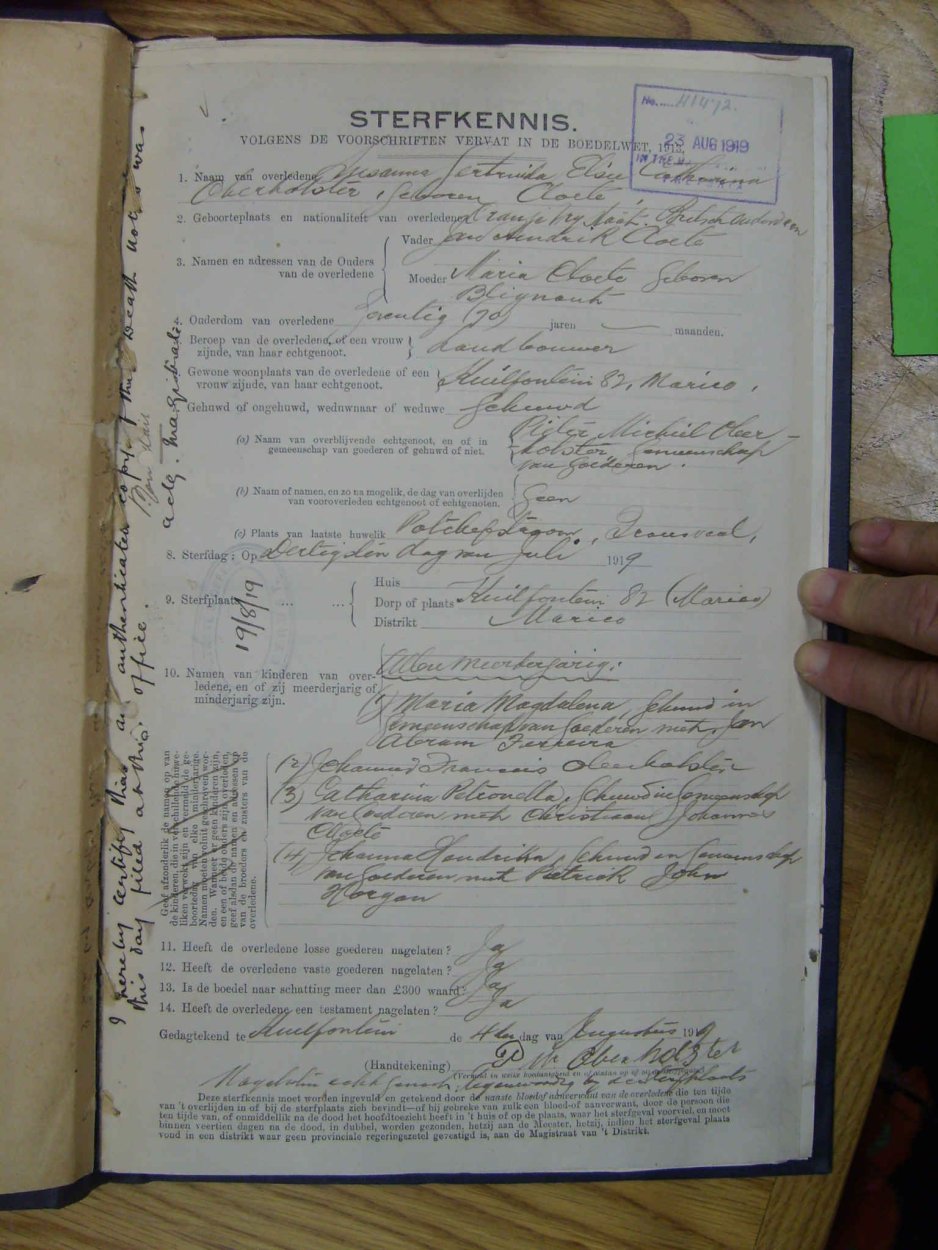 No. H1472.
23 AUG 1919
IN THE M
STERFKENNIS.
VOLGENS DE VOORSCHRIFTEN VERVAT IN DE BOEDELWET, 1913.
1. Naam van overledene Susanna Gertruida Elsie Catharina
Oberholster, geboren Cloete
2. Geboorteplaats en nationaliteit van overledene Oranje Vry Staat. Britsch Onderdaan
3. Namen en adressen van de Ouders van de overledene
Vader Jan Hendrik Cloete
Moeder Maria Cloete geboren
Blignaut
Onderdom van overledene Zeventig (70) jaren — maanden.
Beroep van de overledene, of een vrouw zijnde, van haar echtgenoot. Landbouwer
Gewone woonplaats van de overledene of een vrouw zijnde, van haar echtgenoot. Kuilfontein 82, Marico.
Gehuwd of ongehuwd, weduwnaar of weduwe Gehuwd
(a) Naam van overblijvende echtgenoot, en of in gemeenschap van goederen of gehuwd of niet. Pieter Michiel Ober-
holster, Gemeenschap
van Goederen.
(b) Naam of namen, en zo na mogelik, de dag van overlijden van vooroverleden echtgenoot of echtgenoten. Geen
(c) Plaats van laatste huwelik Potchefstroom, Transvaal,
8. Sterfdag: Op Dertigsten dag van Juli 1919
9. Sterfplaats ... ...
Huis
Dorp of plaats Kuilfontein 82 (Marico)
Distrikt Marico
19/8/19
10. Namen van kinderen van overledene, en of zij meerderjarig of minderjarig zijn.
Allen meerderjarig.
(1) Maria Magdalena, gehuwd in
gemeenschap van Goederen met Jan
Abram Ferreira
(2) Johannes Francois Oberholster
(3) Catharina Petronella, Gehuwd in Gemeenschap
van Goederen met Christiaan Johannes
Cloete
(4) Johanna Hendrika, Gehuwd in Gemeenschap
van Goederen met Patrick John
Horgan
Geef afzonderlik de namen op van
de kinderen, die in verschillende huwe-
liken verwekt zijn en vermeld de ge-
boortedag van elke minderjarige.
Namen moeten voluit geschreven wor-
den. Wanneer er geen kinderen zijn,
en een of beide ouders zijn overleden,
geef alsdan de namen en adressen op
van de broeders en zusters van de
overledene.
11. Heeft de overledene losse goederen nagelaten? Ja
12. Heeft de overledene vaste goederen nagelaten? Ja
13. Is de boedel naar schatting meer dan £300 waard? Ja
14. Heeft de overledene een testament nagelaten? Ja
Gedagtekend te Kuilfontein de 4den dag van Augustus 1919
(Handtekening) P M Oberholzter
Nagelaten echtgenoot, tegenwoordig by de sterfplaats
Deze sterfkennis moet worden ingevuld en getekend door de naaste bloed- of aanverwant van de overledene die ten tijde
van 't overlijden in of bij de sterfplaats zich bevindt—of bij gebreke van zulk een bloed- of aanverwant, door de persoon die
ten tijde van, of onmiddelik na de dood het hoofdtoezicht heeft in 't huis of op de plaats, waar het sterfgeval voorviel, en moet
binnen veertien dagen na de dood, in dubbel, worden gezonden, hetzij aan de Meester, hetzij, indien het sterfgeval plaats
vond in een distrikt waar geen provinciale regeringszetel gevestigd is, aan de Magistraat van 't Distrikt.
I hereby certify this an authenticated copy of the Death Notice was
this day filed at this office.
actg. Magistrate